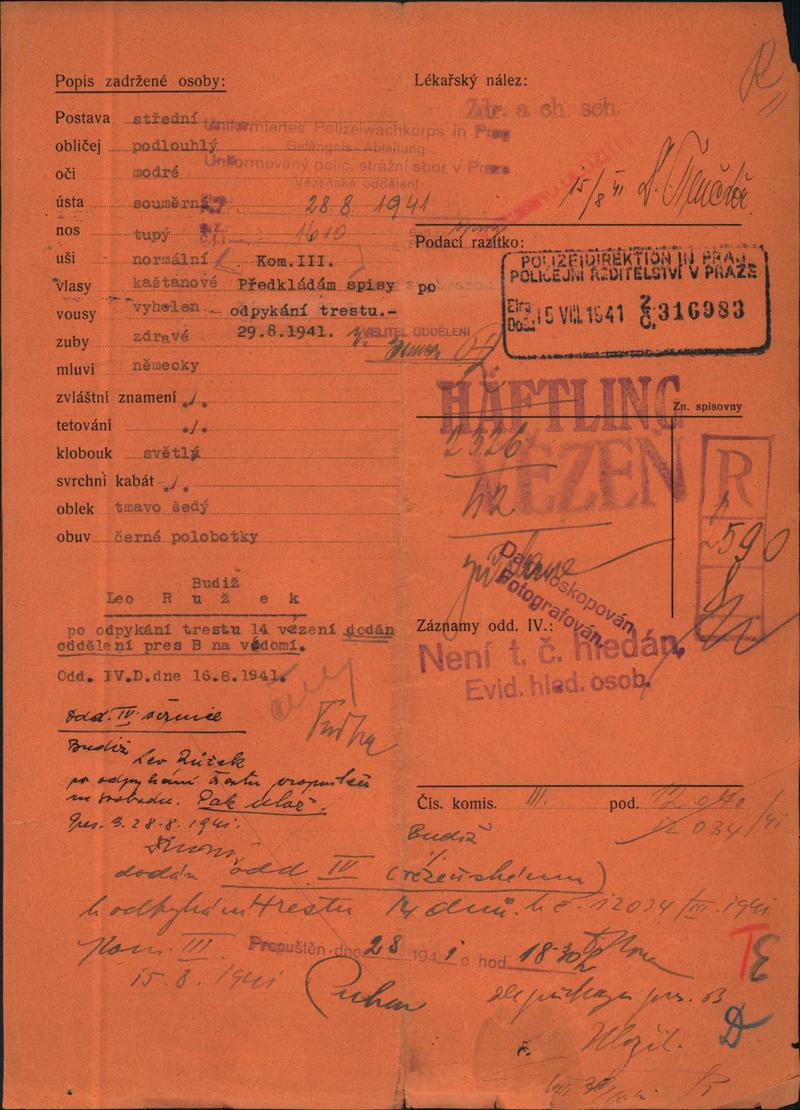 Popis zadržené osoby:
Postava střední
obličej podlouhlý
oči modré
ústa souměrná
nos tupý
uši normální
vlasy kaštanové
vousy vyholen
zuby zdravé
mluví německy
zvláštní znamení ./.
tetování ./.
klobouk světlý
svrchní kabát ./.
oblek tmavo šedý
obuv černé polobotky
Uniformiertes Polizeiwachkorps in Prag
Gefängnis-Abteilung
Uniformovaný polic. strážní sbor v Praze
Vězeňské oddělení
28.8.1941
1610
Kom.III.
Předkládám spisy po
odpykání trestu.-
29.8.1941.
VELITEL ODDĚLENÍ
Budiž
Leo Růžek
po odpykání trestu 14 vězení dodán
oddělení pres B na vědomí.
Odd. IV.D.dne 16.8.1941.
Odd. IV věznice
Budiž Leo Růžek
po odpykání trestu propuštěn
na svobodu.
Pres. B. 28.8.1941.
Lékařský nález:
Zdr. a ch. sch.
15/8 41
R
Podací razítko:
POLIZEIDIREKTION IN PRAG
POLICEJNÍ ŘEDITELSTVÍ V PRAZE
Eing. Doš. 15.VIII.1941 Z. Č. 316983
HÄFTLING
VĚZEŇ
Zn. spisovny
2326
42
R
2590
Daktyloskopován
Fotografován
Záznamy odd. IV.:
Není t. č. hledán.
Evid. hled. osob.
Čís. komis. III. pod.
12034/41
Budiž
dodán odd. IV (vězeňskému)
k odpykání trestu 14 dnů. k č. 12034/III. 1941
Kom. III
15.8.1941
Propuštěn dne 28 1941 o hod. 18.30
TE
D